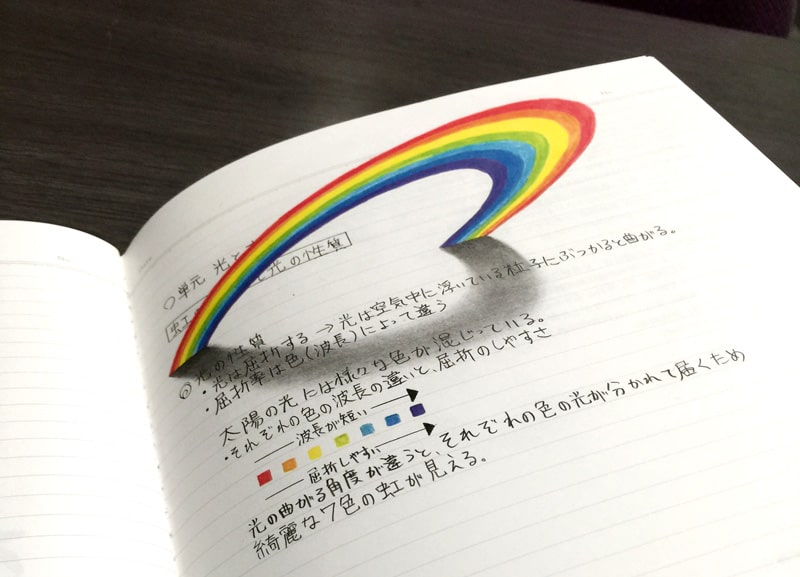 ○単元 光と
光の性質
虹
◎光の性質
・光は屈折する → 光は空気中に浮いている粒子にぶつかると曲がる。
・屈折率は色(波長)によって違う
太陽の光には様々な色が混じっている。
・それぞれの色の波長の違いと、屈折のしやすさ
波長が短い
屈折しやすい
光の曲がる角度が違うと、それぞれの色の光が分かれて届くため
綺麗な7色の虹が見える。